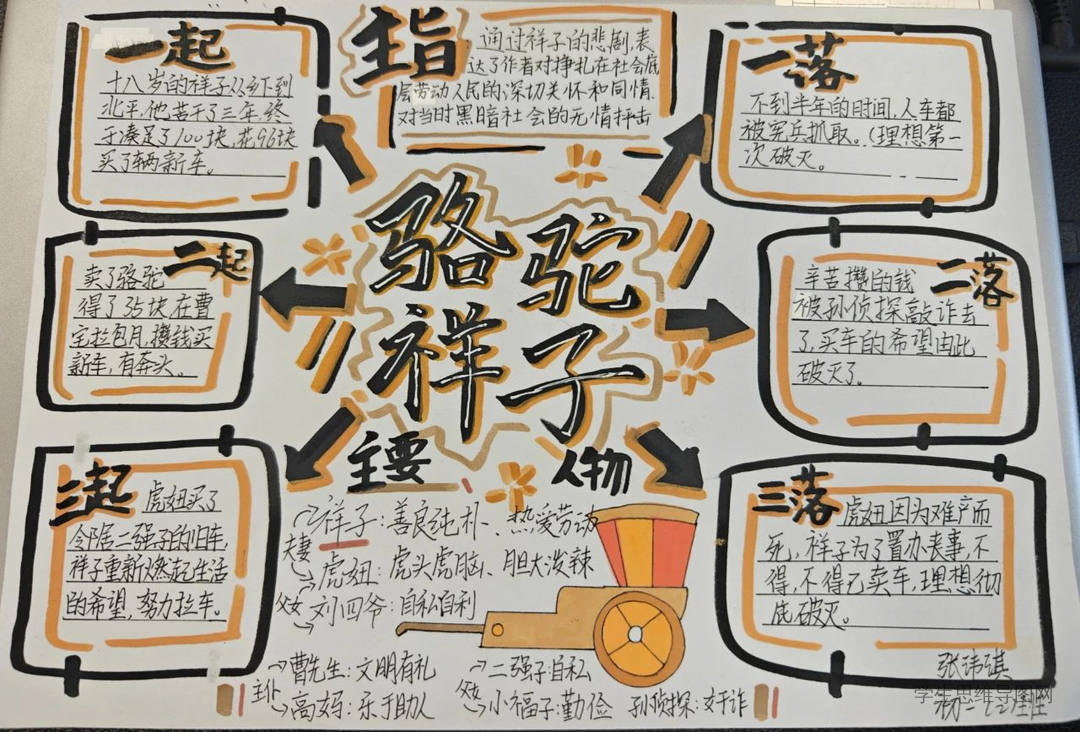 一起
十八岁的祥子从乡下到
北平，他苦干了三年，终
于凑足了100块，花96块
买了辆新车。
主旨
通过祥子的悲剧，表
达了作者对挣扎在社会底
层劳动人民的深切关怀和同情，
对当时黑暗社会的无情抨击
一落
不到半年的时间，人车都
被军兵抓取。（理想第一
次破灭。
骆驼
祥子
二起
卖了骆驼
得了35块，在曹
宅拉包月，攒钱买
新车，有奔头。
二落
辛苦攒的钱
被孙侦探敲诈去
了，买车的希望由此
破灭了。
三起
虎妞买了
邻居二强子的旧车，
祥子重新燃起生活
的希望，努力拉车。
主要 人物
祥子：善良纯朴、热爱劳动
夫妻
虎妞：虎头虎脑、胆大泼辣
父女
刘四爷：自私自利
曹先生：文明有礼
主仆
高妈：乐于助人
二强子：自私
父女
小福子：勤俭
孙侦探：奸诈
三落
虎妞因为难产而
死，祥子为了置办丧事，不
得，不得已卖车，理想彻
底破灭。
学生思维导图网